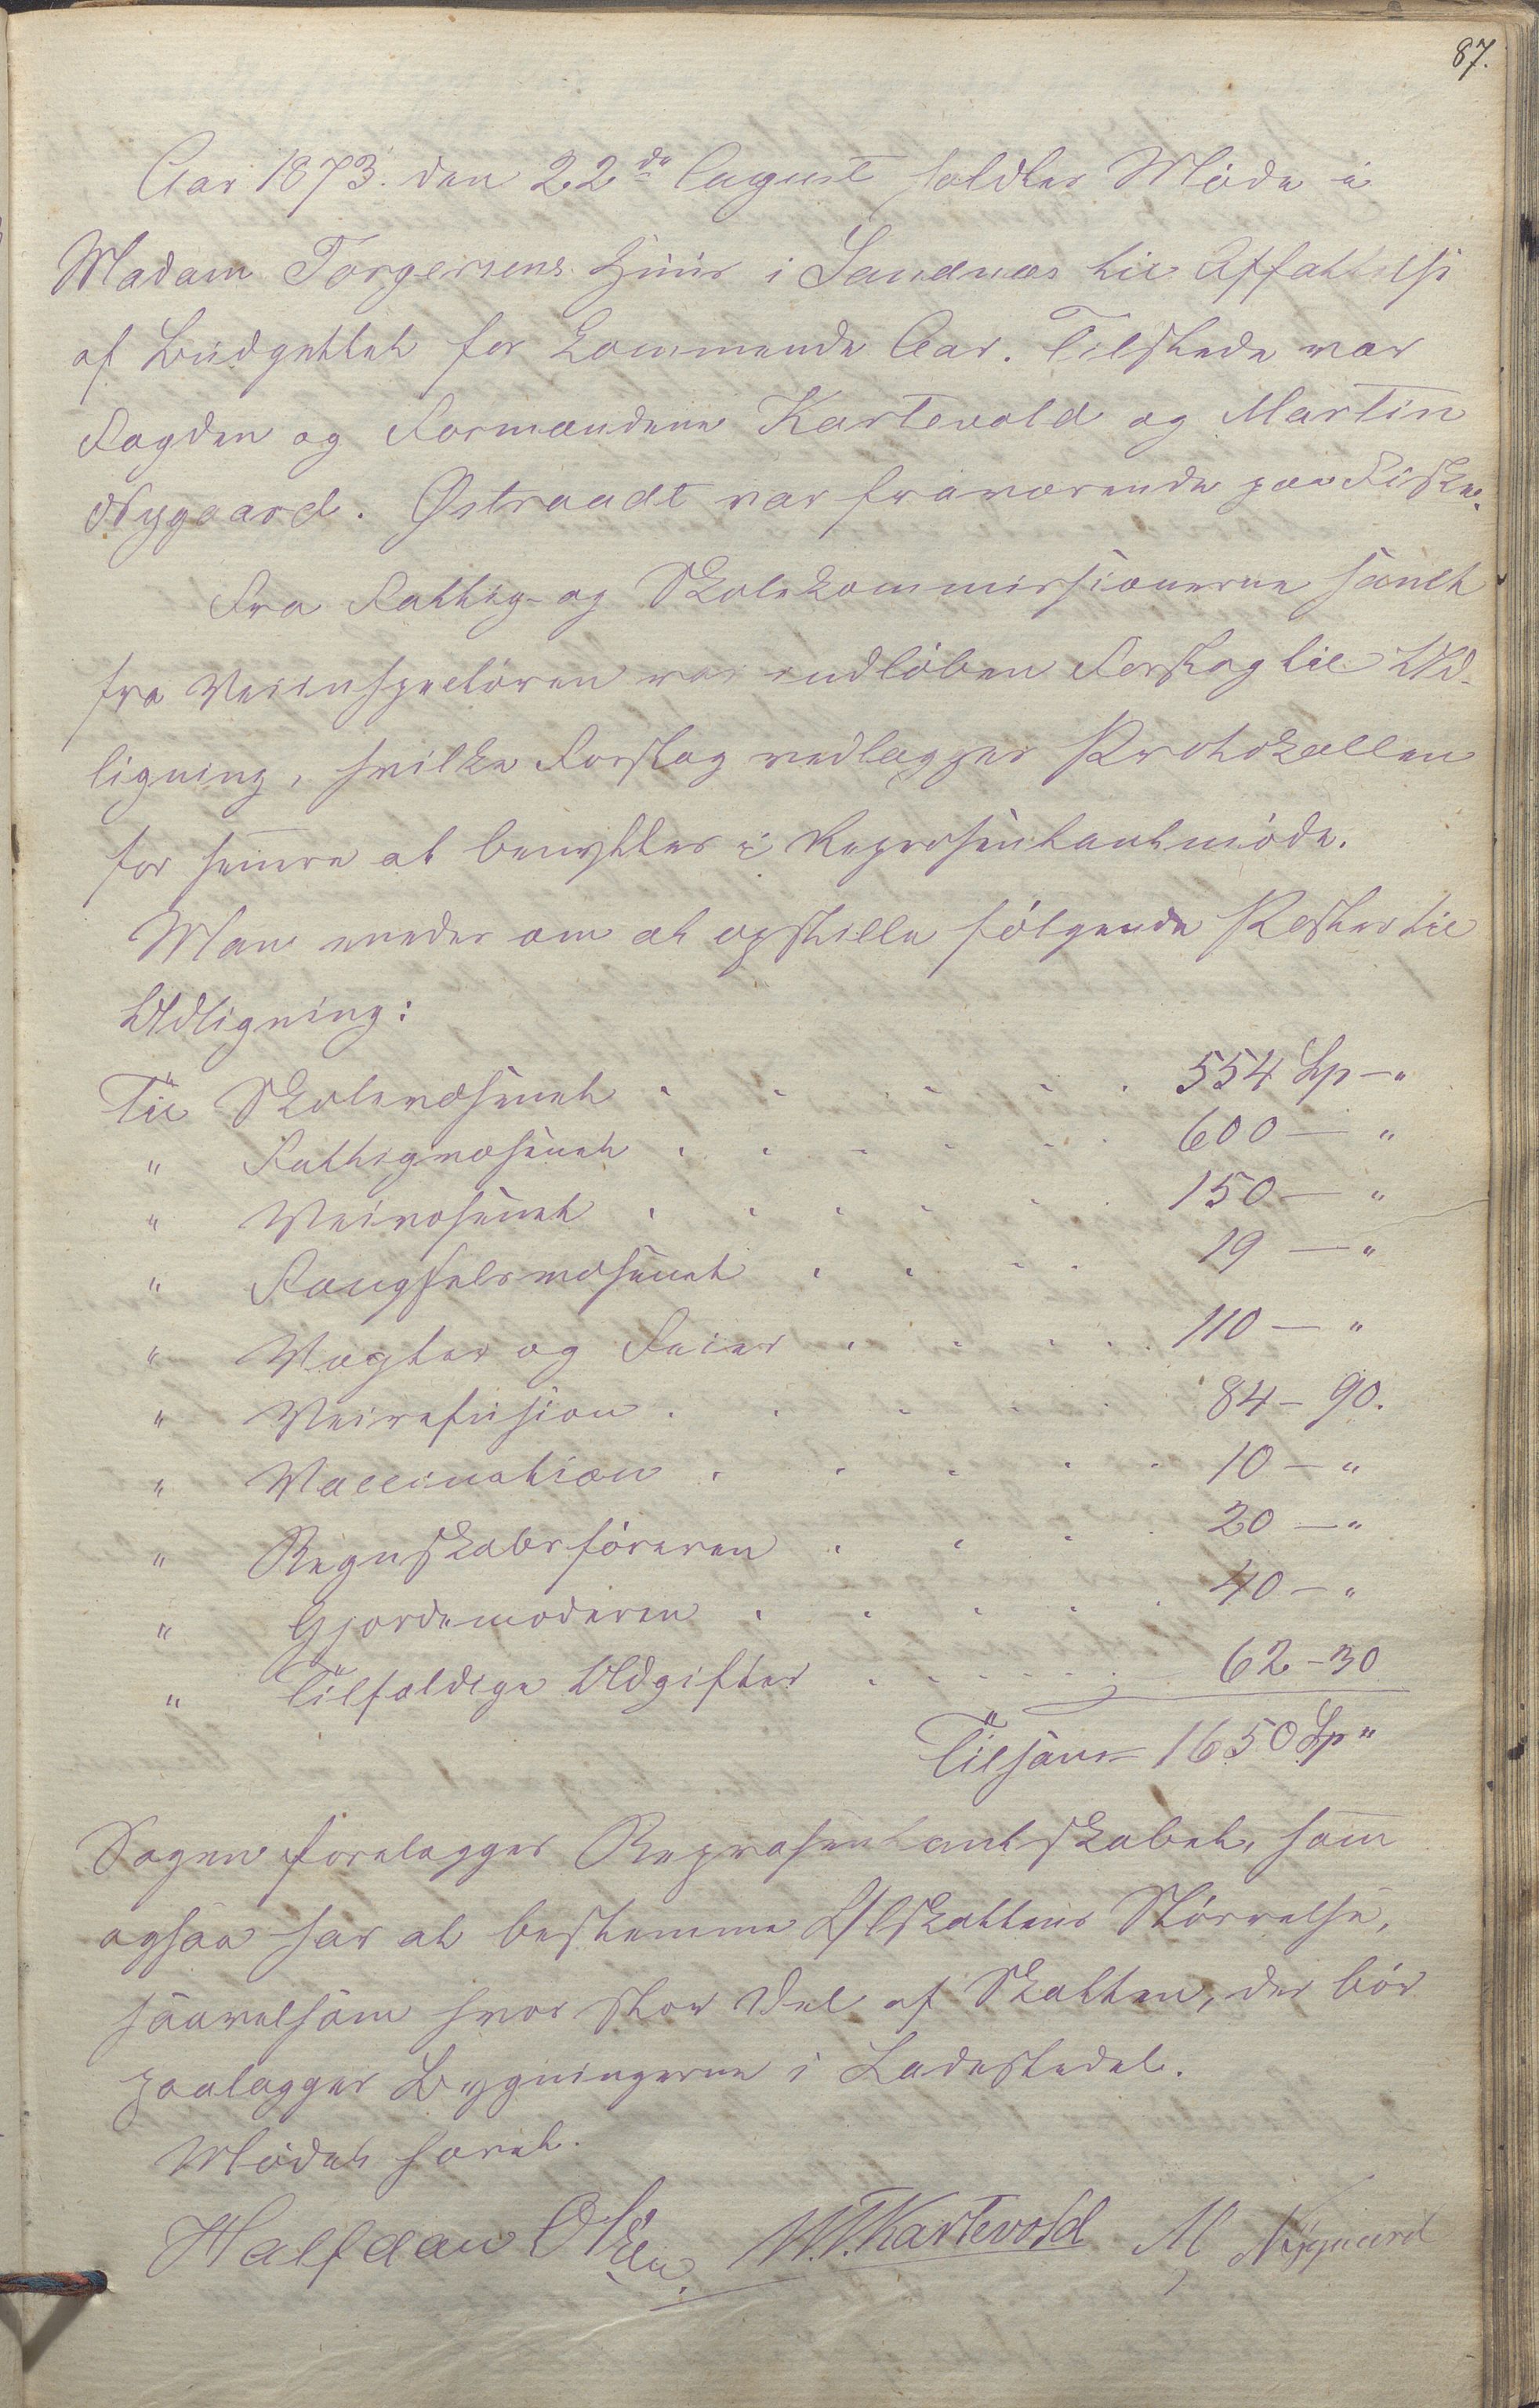 87.
Aar 1873. den 22de August holdtes Møde i
Madam Torgersens Huus i Sandnæs til Affattelse
af Budgettet for kommende Aar. Tilstede var
Fogden og Formændene Kartevold og Martin
Nygaard. Østraadt var fraværende paa Fiske.
Fra Fattig- og Skolekommissionerne samt
fra Veiinspectøren var indløben Forslag til Ud-
ligning, hvilke Forslag vedlægges Protokollen
for senere at benyttes i Repræsentantmøde.
Man enedes om at opstille følgende Poster til
Udligning:
Til Skolevæsenet . . . . . 554 Sp - "
" Fattigvæsenet . . . . . 600 - "
" Veivæsenet . . . . . 150 - "
" Fængselsvæsenet . . . . 19 - "
" Vægter og Feier . . . . 110 - "
" Veirefusion . . . . . 84 - 90.
" Vaccination . . . . . 10 - "
" Regnskabsføreren . . . . 20 - "
" Gjordemoderen . . . . . 40 - "
" Tilfældige Udgifter . . . . . 62 - 30
Tilsam= 1650 Sp "
Sagen forelægges Repræsentantskabet, som
ogsaa har at bestemme Ølskattens Størrelse,
saavelsom hvor stor Del af Skatten, der bør
paalægges Bygningerne i Ladestedet.
Mødet hævet.
Halfdan Olsen. M. T. Kartevold M Nygaard